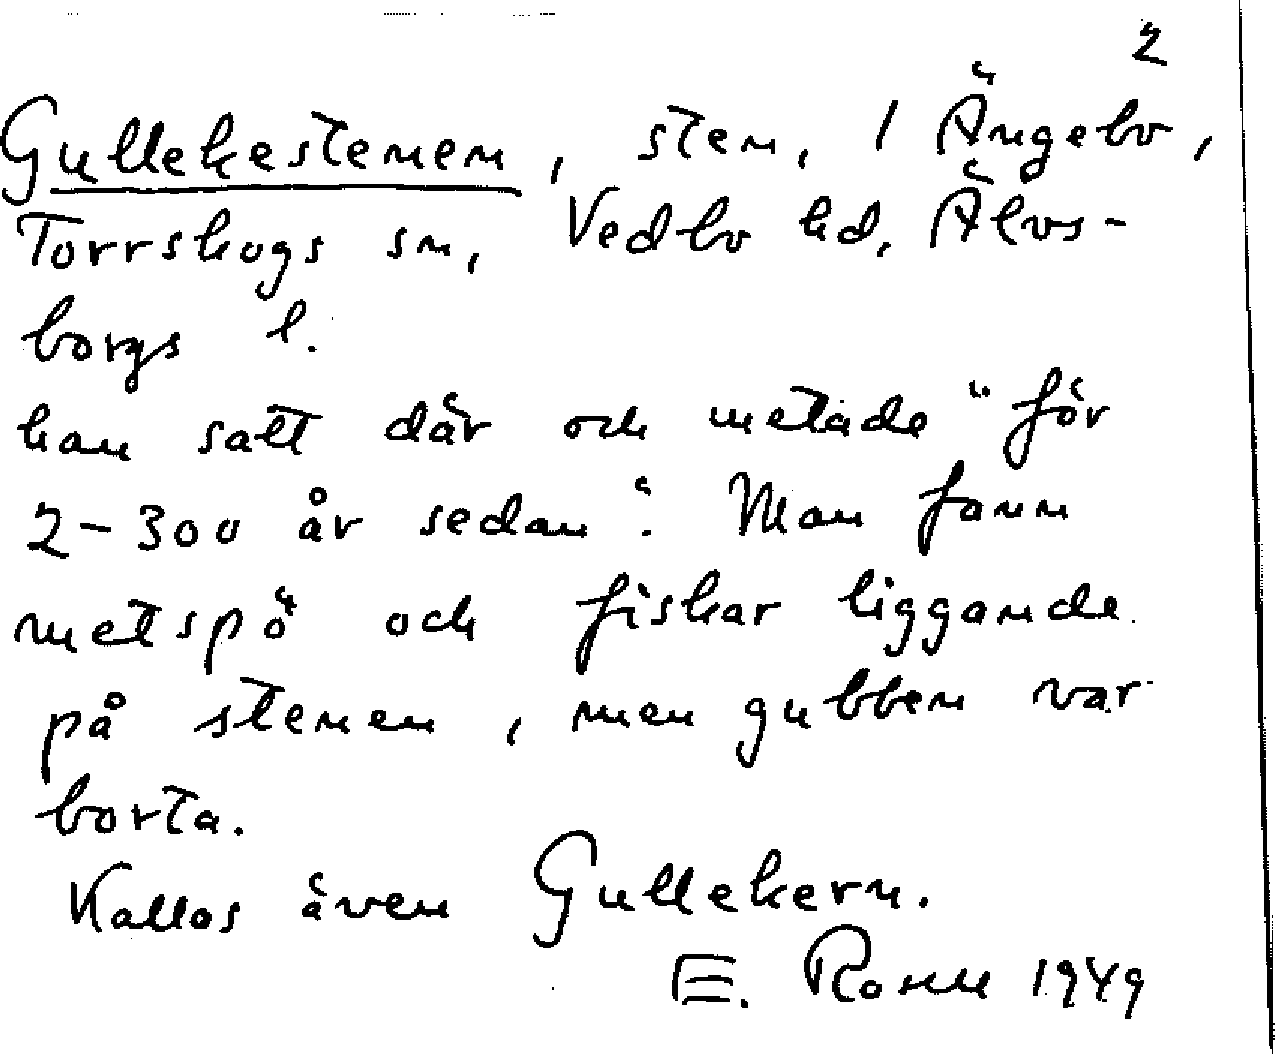 2
Gullekestenen, sten, 1 Ängebo,
Torrskogs sn, Vedbo hd, Älvs-
borgs l.
han satt där och metade "för
2-300 år sedan". Man fann
metspö och fiskar liggande
på stenen, men gubben var
borta.
Kallas även Gullekern.
E. 1949